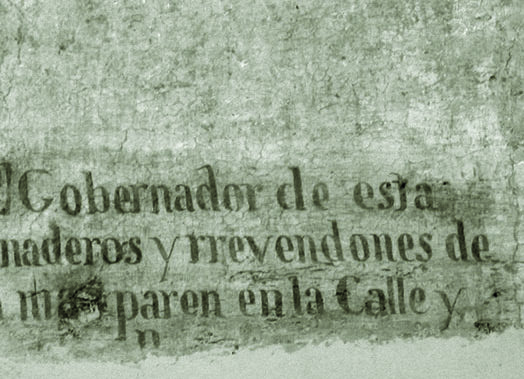 l Gobernador de esta
maderos y rrevendones de
paren en la Calle y